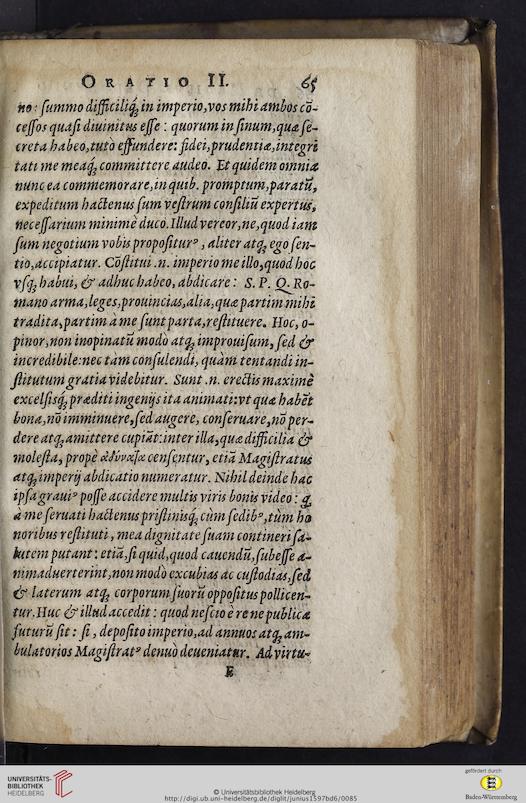 ORATIO II. 65
no: summo difficiliq́; in imperio, vos mihi ambos cō-
cessos quasi diuinitus esse: quorum in sinum, quæ se-
creta habeo, tutò effundere: fidei, prudentiæ, integri
tati me meaq́; committere audeo. Et quidem omnia
nunc ea commemorare, in quib. promptum, paratū,
expeditum hactenus sum vestrum consiliū expertus,
necessarium minimè duco. Illud vereor, ne, quod iam
sum negotium vobis propositurꝰ, aliter atq́; ego sen-
tio, accipiatur. Cōstitui .n. imperio me illo, quod hoc
vsq́; habui, & adhuc habeo, abdicare: S. P. Q. Ro-
mano arma, leges, prouincias, alia, quæ partim mihi
tradita, partim a me sunt parta, restituere. Hoc, o-
pinor, non inopinatū modò atq́; improuisum, sed &
incredibile: nec tam consulendi, quàm tentandi in-
stitutum gratia videbitur. Sunt .n. erectis maximè
excelsisq́; præditi ingenijs ita animati: vt quæ habēt
bona, nō imminuere, sed augere, conseruare, nō per-
dere atq́; amittere cupiāt: inter illa, quæ difficilia &
molesta, propè ἀδύνατα censentur, etiā Magistratus
atq́; imperij abdicatio numeratur. Nihil deinde hac
ipsa grauiꝰ posse accidere multis viris bonis video: q
à me seruati hactenus pristinisq́; cùm sedibꝰ, tùm ho
noribus restituti, mea dignitate suam contineri sa-
lutem putant: etiā, si quid, quod cauendū, subesse a-
nimaduerterint, non modò excubias ac custodias, sed
& laterum atq́; corporum suorū oppositus pollicen-
tur. Huc & illud accedit: quod nescio è re ne publica
futurū sit: si, deposito imperio, ad annuos atq́; am-
bulatorios Magistratꝰ denuò deueniatur. Ad virtu-
E
UNIVERSITÄTS-
BIBLIOTHEK
HEIDELBERG
© Universitätsbibliothek Heidelberg
http://digi.ub.uni-heidelberg.de/diglit/junius1597bd6/0085
gefördert durch
Baden-Württemberg